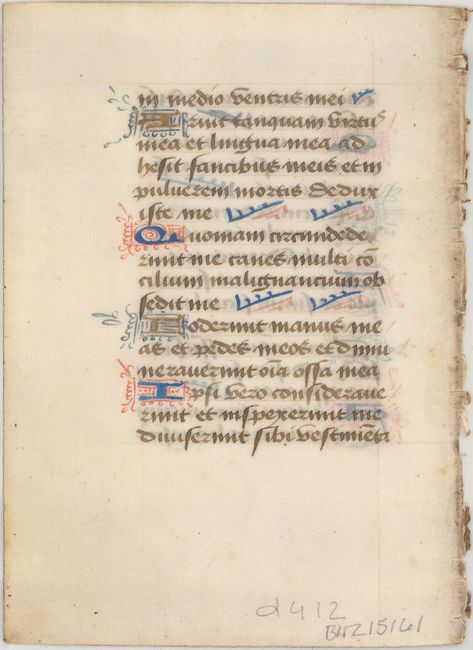 in medio ventris mei
Aruit tanquam virtus
mea et lingua mea ad
hesit faucibus meis et in
pulverem mortis dedux
iste me
Quoniam circundede
runt me canes multi cō
cilium malignancium ob
sedit me
Foderunt manus me
as et pedes meos et dinu
neraverunt oīa ossa mea
Ipsi vero considerave
runt et inspexerunt me
diviserunt sibi vestimēta
d412